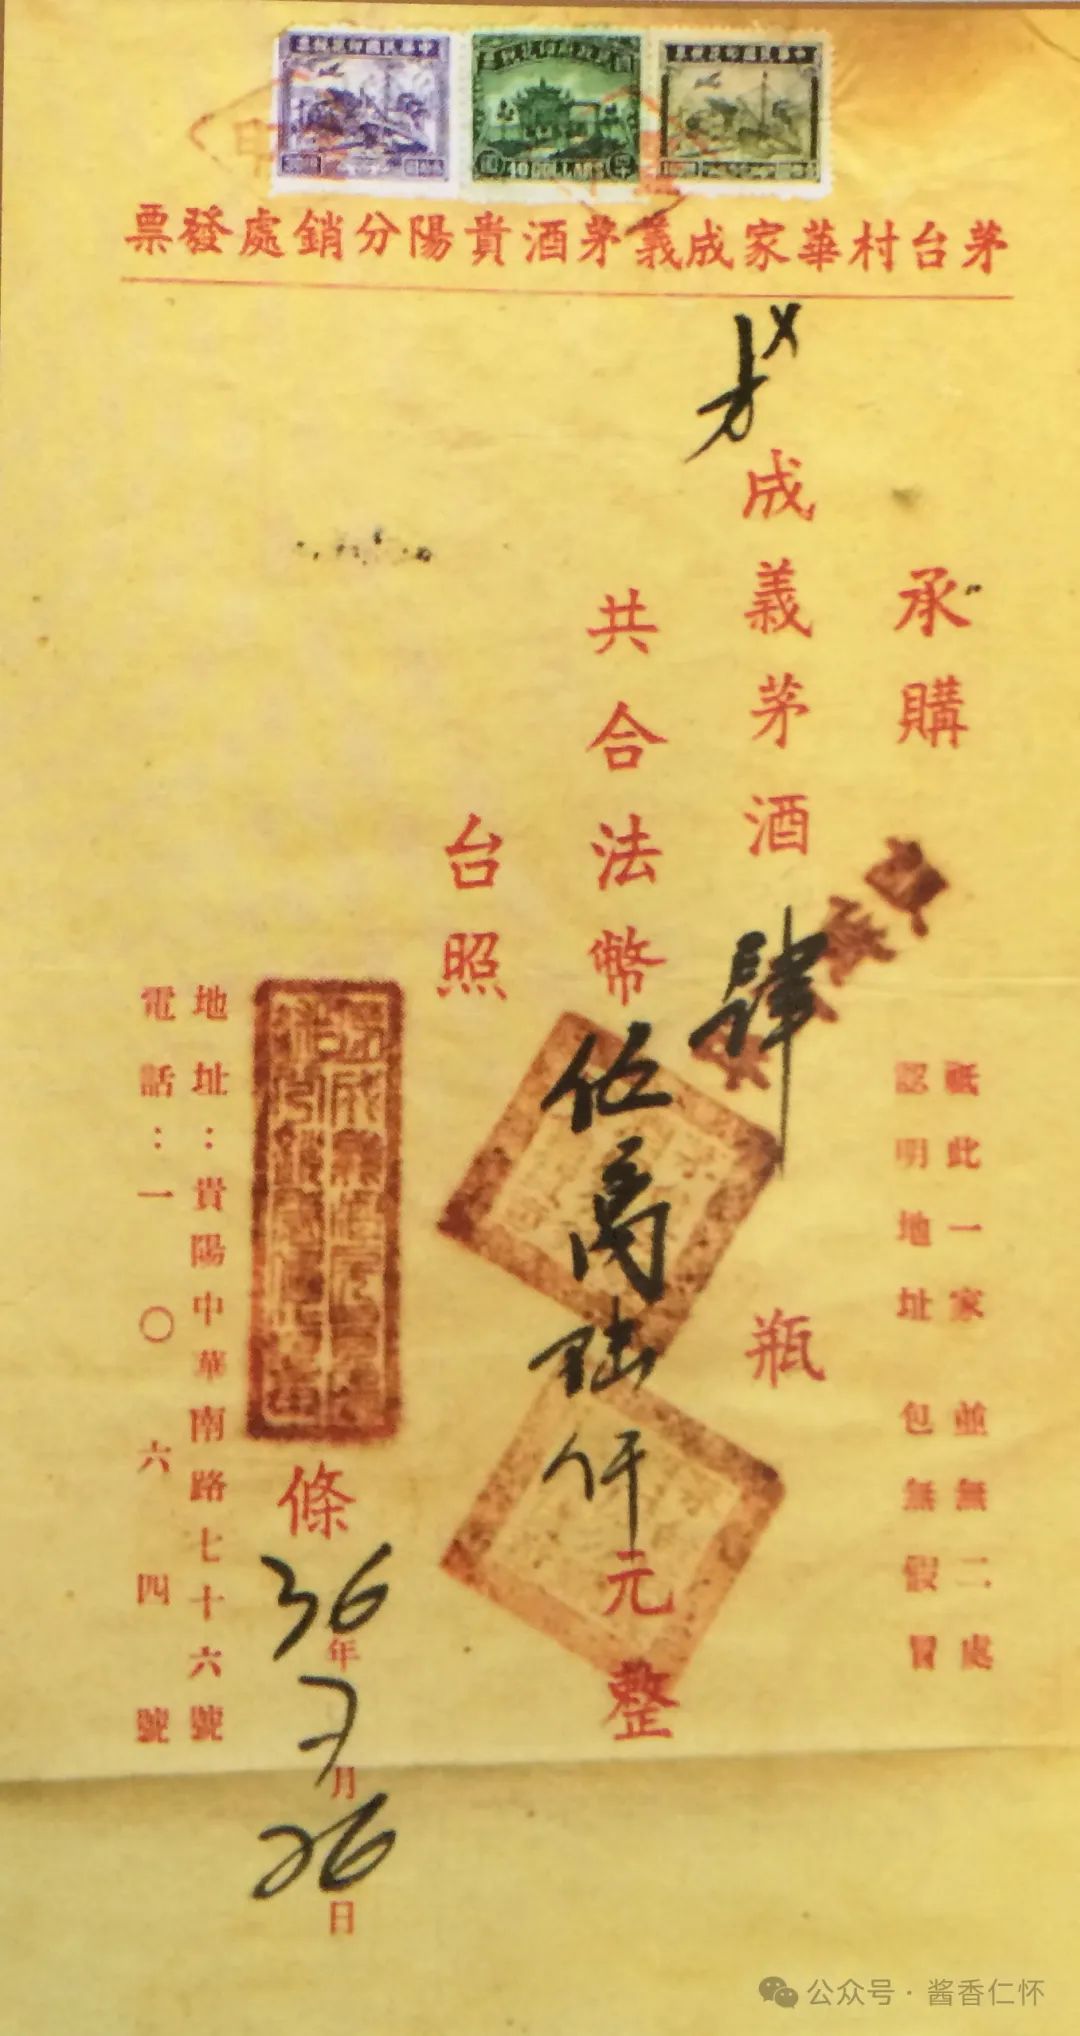 茅台村華家成義茅酒貴陽分銷處發票
承購
成義茅酒肆瓶
共合法幣伍萬陸仟元整
台照
祇此一家並無二處
認明地址包無假冒
條
36年7月26日
地址：貴陽中華南路七十六號
電話：一〇六四號
40 DOLLARS
公众号·酱香仁怀